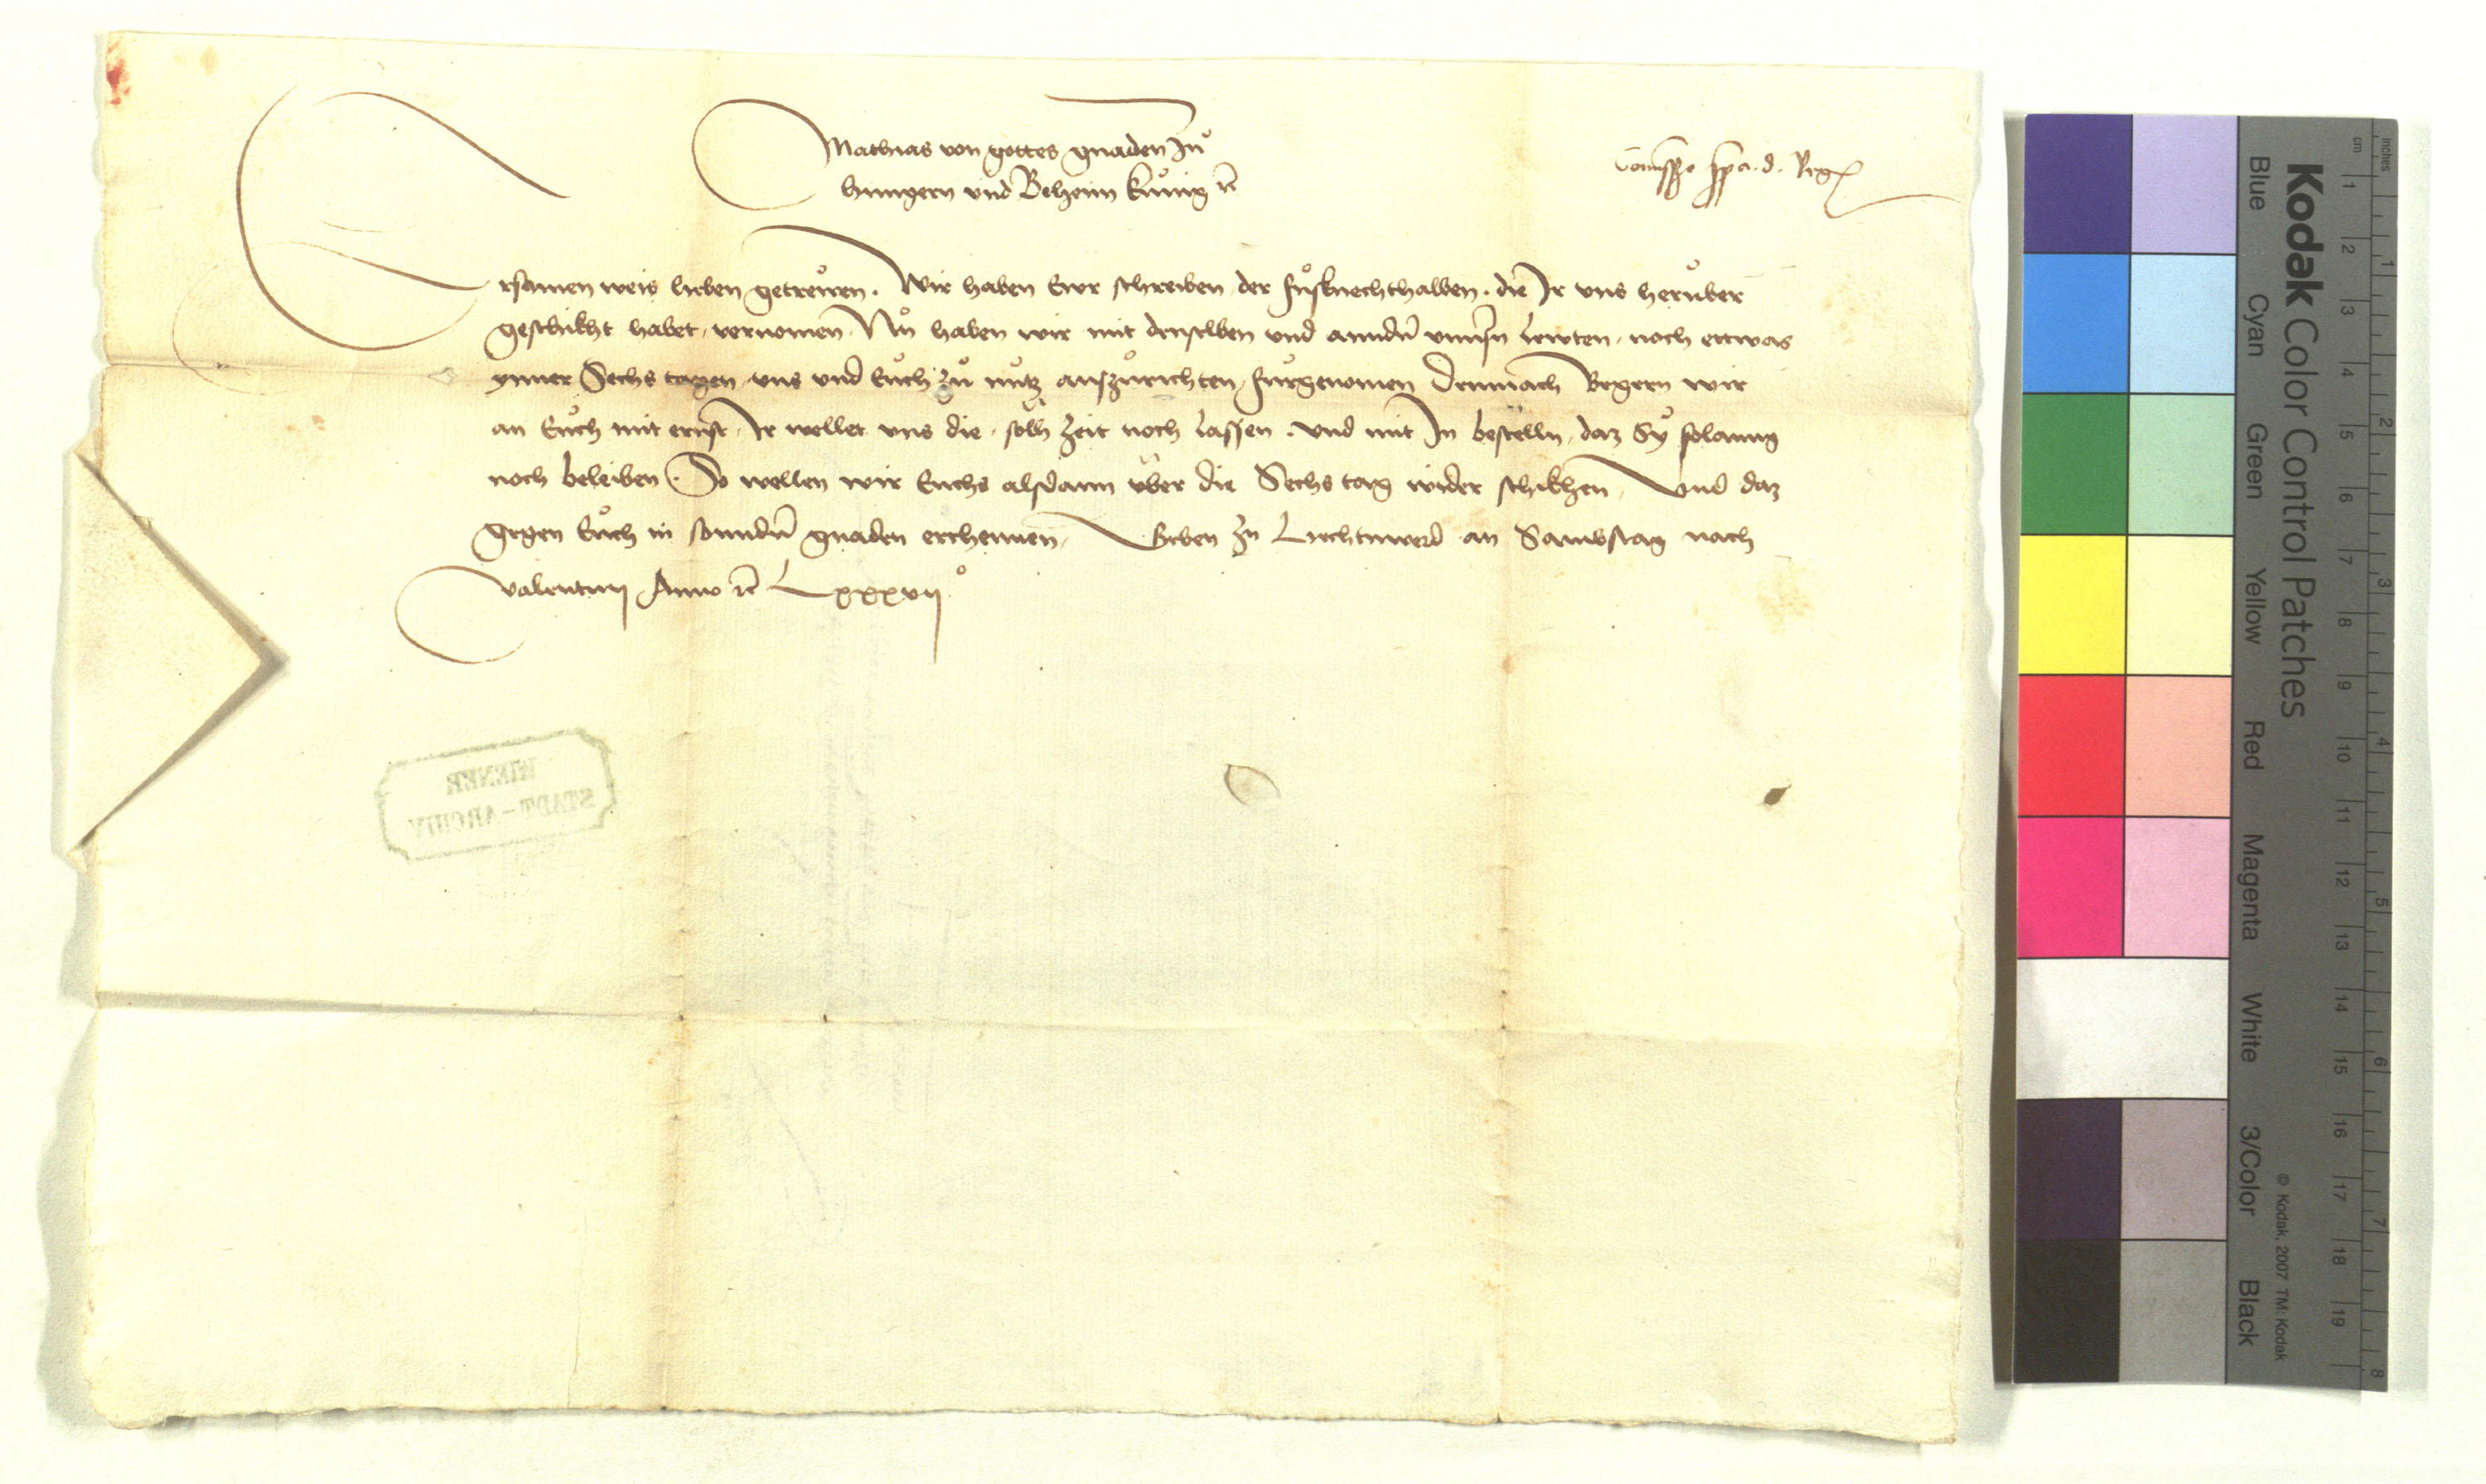 Mathias von gottes gnaden zů
hungern vnd Beheim kůnig ꝛc̃
Ersamen weis lieben getrewen. Wir haben Ewr schreiben der fůsknechthalben. die Ir vns herůber
geschikht habet, vernomen. Nů haben wir mit denselben vnd anndern̄ vnnsern Lewten, noch ettwas
ynner Sechs tagen, vns vnd Eůch zů nůtz auszůrichten, fůrgenomen Demnach Begern wir
an Eůch mit ernst, Ir wellet vns die, solh zeit noch lassen. vnd mit In bestelln, daz Sy solanng
noch beleiben. So wellen wir Euchs alsdann vber die Sechs tag wider schikhen, Vnd daz
gegen Eůch in sonndern̄ gnaden erchennen, Geben zu Liechtnwerd an Sambstag nach
Valentinij Anno ꝛc̃ Lxxxvijº
WIENER
STADT-ARCHIV
Kodak Color Control Patches
Blue
Cyan
Green
Yellow
Red
Magenta
White
3/Color
Black
© Kodak, 2007 TM: Kodak
inches
cm
1 2 3 4 5 6 7 8 9 10 11 12 13 14 15 16 17 18 19
1 2 3 4 5 6 7 8